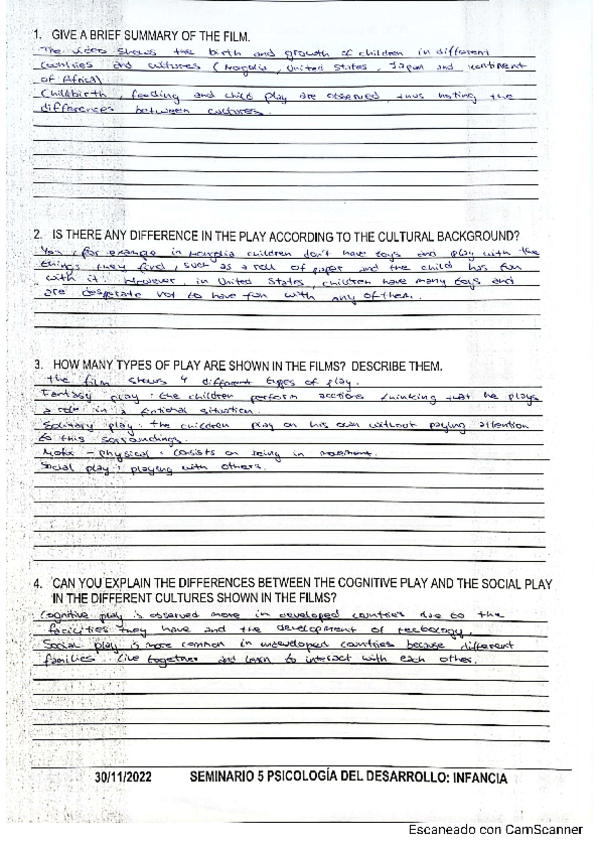 1. GIVE A BRIEF SUMMARY OF THE FILM.
The video shows the birth and growth of children in different
countries and cultures (Mogolia, United States, Japan and continent
of Africa).
Childbirth, feeding and child play are observed, thus noting the
differences between cultures.
2. IS THERE ANY DIFFERENCE IN THE PLAY ACCORDING TO THE CULTURAL BACKGROUND?
Yes, for example in Mongolia children don't have toys and play with the
things they find, such as a roll of paper and the child has fun
with it. However, in United States, children have many toys and
are desperate not to have fun with any of them.
3. HOW MANY TYPES OF PLAY ARE SHOWN IN THE FILMS? DESCRIBE THEM.
The film shows 4 different types of play.
Fantasy play: the children perform actions thinking that he plays
a role in a fictional situation.
Solitary play: the children play on his own without paying attention
to this sorroundings.
Motor - physical: consists on being in movement.
Social play: playing with others.
4. CAN YOU EXPLAIN THE DIFFERENCES BETWEEN THE COGNITIVE PLAY AND THE SOCIAL PLAY
IN THE DIFFERENT CULTURES SHOWN IN THE FILMS?
Cognitive play is observed more in developed countries due to the
facilities they have and the development of technology.
Social play is more common in undeveloped countries because different
families live together and learn to interact with each other.
30/11/2022 SEMINARIO 5 PSICOLOGÍA DEL DESARROLLO: INFANCIA
Escaneado con CamScanner